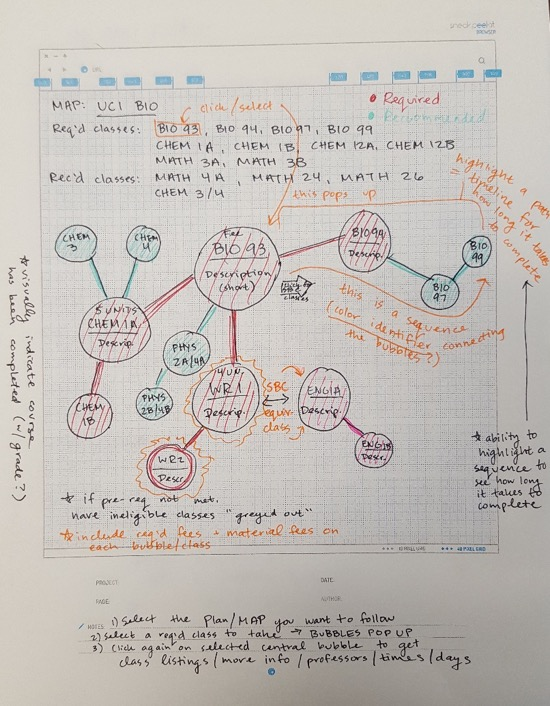 sneakpeekit
BROWSER
URL
MAP: UCI BIO
click/select
Required
Recommended
Req'd classes: BIO 93, BIO 94, BIO 97, BIO 99
CHEM 1A, CHEM 1B, CHEM 12A, CHEM 12B
MATH 3A, MATH 3B
Rec'd classes: MATH 4A, MATH 24, MATH 26
CHEM 3/4
this pops up
highlight a path
= timeline for
how long it takes
to complete
CHEM
3
CHEM
4
Fee
BIO 93
Description
(short)
click to
see
classes
BIO 94
Descrip.
BIO
99
BIO
97
this is a sequence
(color identifier connecting
the bubbles?)
5 UNITS
CHEM 1A
Descrip.
CHEM
1B
PHYS
2A/4A
PHYS
2B/4B
4 UN.
WR 1
Descrip.
SBC
equiv.
class
ENG1A
Descrip.
ENG1B
Descr.
WR2
Descr.
* visually indicate course
has been completed (w/grade?)
* ability to
highlight a
sequence to
see how long
it takes to
complete
* if pre-req not met,
have ineligible classes "greyed out"
* include req'd fees + material fees on
each bubble/class
PROJECT:
DATE:
PAGE:
AUTHOR:
NOTES 1) Select the Plan/MAP you want to follow
2) select a req'd class to take → BUBBLES POP UP
3) click again on selected central bubble to get
class listings/more info/professors/times/days